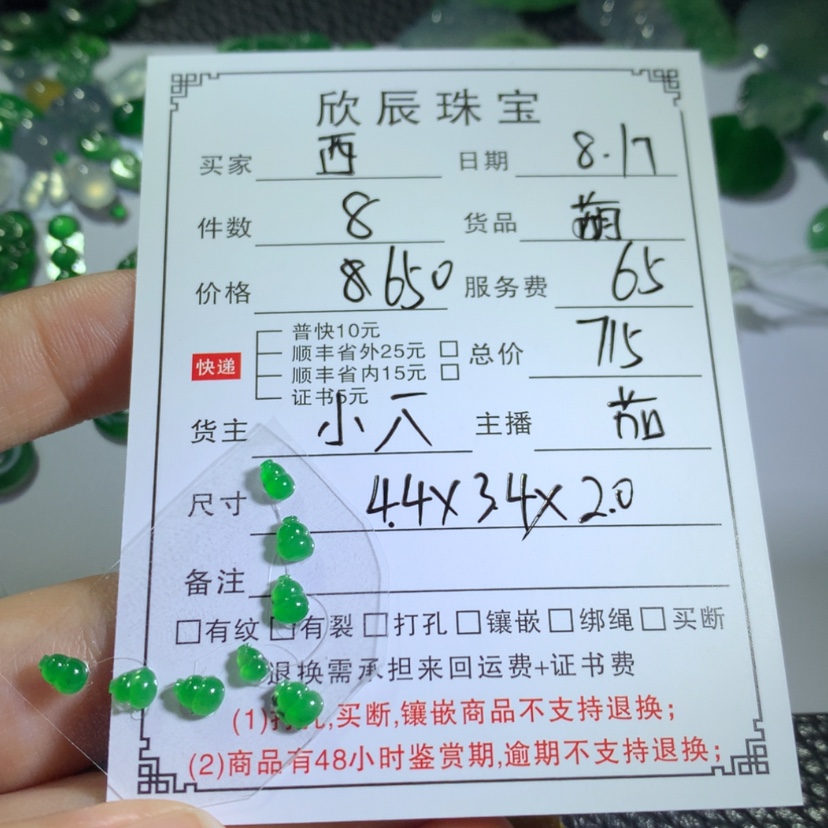 欣辰珠宝
买家 西 日期 8.17
件数 8 货品 葫
价格 8650 服务费 65
普快10元
快递 顺丰省外25元 □ 总价 715
顺丰省内15元 □
证书5元
货主 小八 主播 茹
尺寸 4.4X3.4X2.0
备注
□有纹 □有裂 □打孔 □镶嵌 □绑绳 □买断
退换需承担来回运费+证书费
(1)打孔,买断,镶嵌商品不支持退换;
(2)商品有48小时鉴赏期,逾期不支持退换;